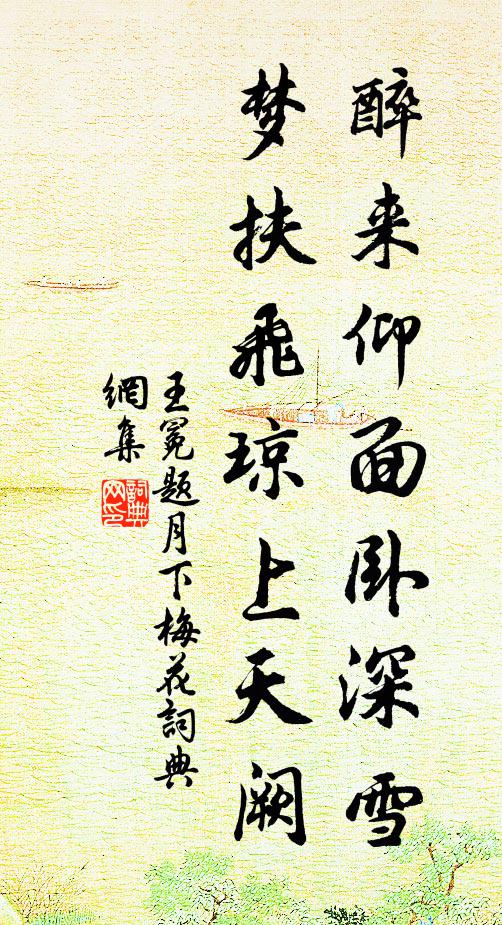 醉来仰面卧深雪
梦扶飞琼上天阙
王冕题月下梅花詞典
網集
詞典
网印